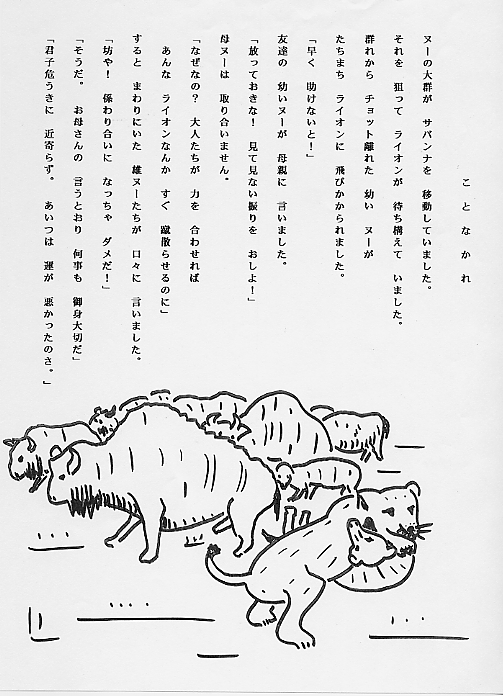 ことなかれ
ヌーの大群が　サバンナを　移動していました。
それを　狙って　ライオンが　待ち構えて　いました。
群れから　チョット離れた　幼い　ヌーが
たちまち　ライオンに　飛びかかられました。
「早く　助けないと！」
友達の　幼いヌーが　母親に　言いました。
「放っておきな！　見て見ない振りを　おしよ！」
母ヌーは　取り合いません。
「なぜなの？　大人たちが　力を　合わせれば
あんな　ライオンなんか　すぐ　蹴散らせるのに」
すると　まわりにいた　雄ヌーたちが　口々に　言いました。
「坊や！　係わり合いに　なっちゃ　ダメだ！」
「そうだ。　お母さんの　言うとおり　何事も　御身大切だ」
「君子危うきに　近寄らず。　あいつは　運が　悪かったのさ。」